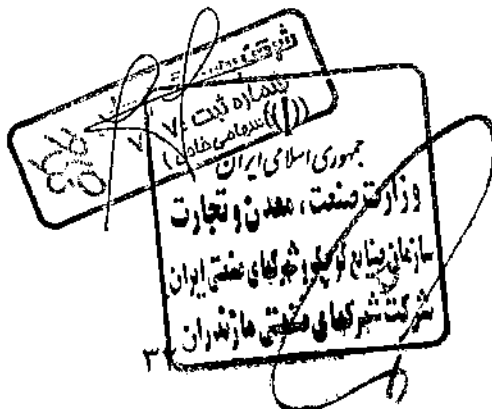 شرکت
شماره ثبت: ۷۰۷
(سهامی خاص)
جمهوری اسلامی ایران
وزارت صنعت، معدن و تجارت
سازمان صنایع کوچک و شهرکهای صنعتی ایران
شرکت شهرکهای صنعتی مازندران
۳۲